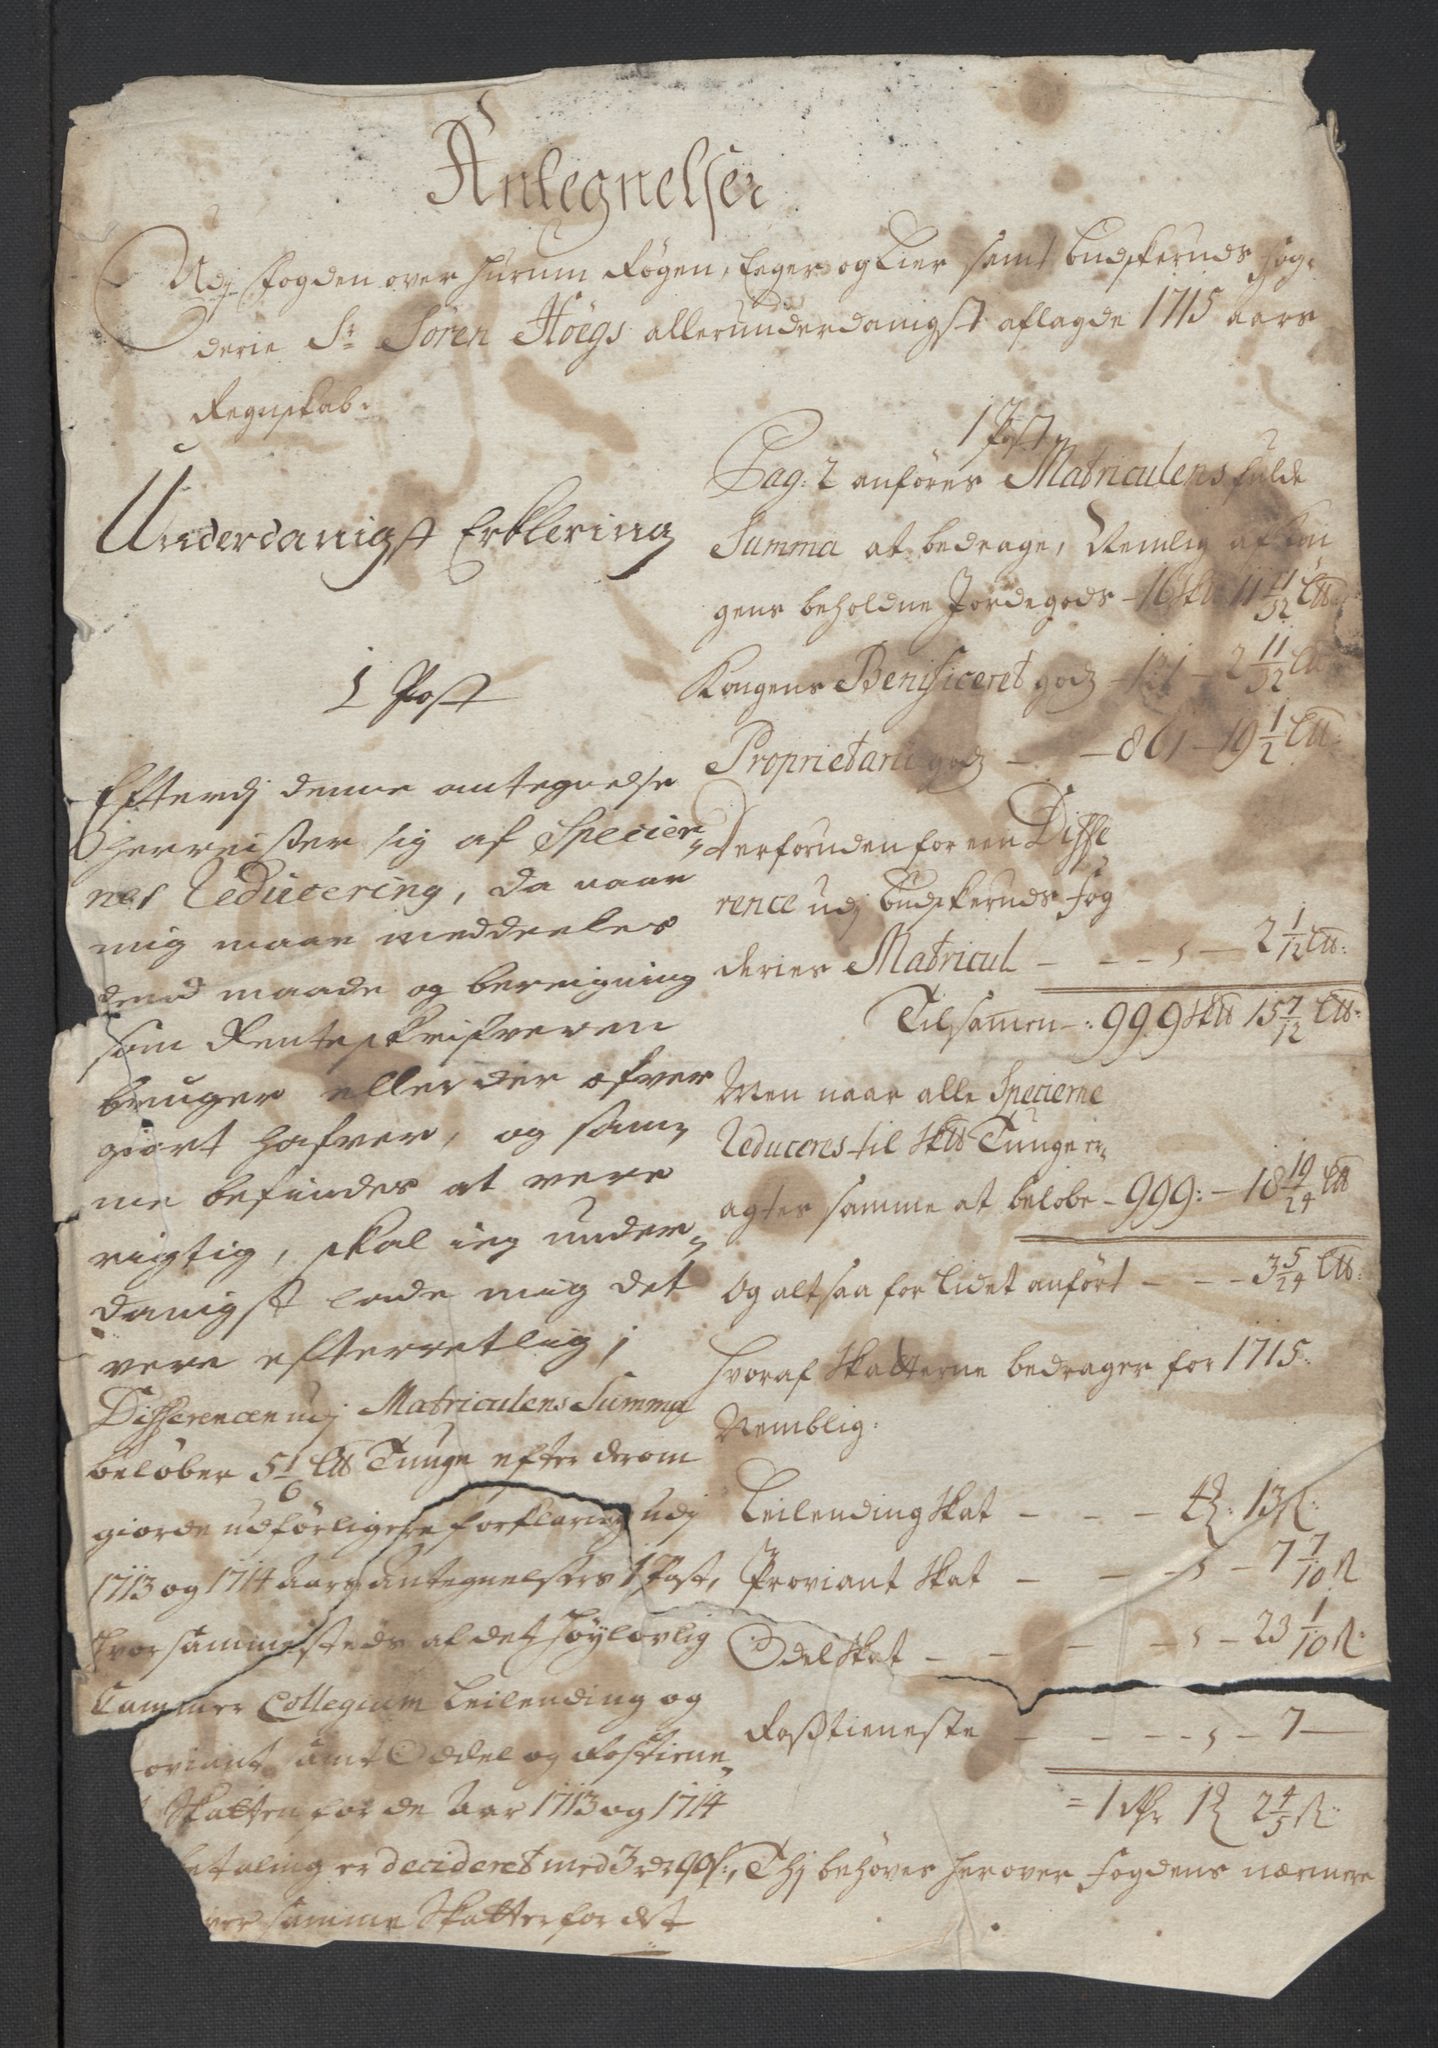 Antegnelser
Udj Fogden over Hurum Røgen, Eeger og Lier samt Budskeruds fog-
derie Sr: Sören Höegs allerunderdanigst aflagde 1715 aars
Regnskab.
Underdanigst Erklering
1 Post
Efterdj denne antegnelse
herreiser sig af Specier-
nes Reducering, da naar
mig maae meddeeles
dend maade og bereigning
som Renteskrifveren
bruger eller der ofver
giort hafver, og sam-
me befindes at vere
rigtig, skal ieg under-
danigst lade mig det
vere efterretlig;
Differencen udj Matriculens Summa
beløber 5 1/6 Lttr Tunge efter derom
giorde udførligere forklaring udj
1713 og 1714 aars Antegnelsers 1 Post,
hvor sammesteds af det Høylovlig
Cammer Collegium Leilending og
oviant samt Oddel og Rostiene-
Skatten for de Aar 1713 og 1714
betaling er decideret med 3 rd 90 s:,
samme Skatter for det
1 Post
Pag: 2 anföres Matriculens fulde
Summa at bedrage, Nemlig af Kon
gens beholdne Jordegods - 16 Sktt 11 11/32 Ltt
Kongens Benificeret godz - 121 - 2 21/32 Ltt
Proprietarii godz - - 861 - 19 1/2 Ltt:
Derforuden for een Diffe
rence udj Budskeruds Fog
deries Matricul - - - 2 1/12 Ltt:
Tilsamen -: 999 Skttr 15 7/12 Ltt:
Men naar alle Specierne
Reduceres til Skttr Tunge er-
agtes samme at beløbe - 999: - 18 19/24 Ltt
Og altsaa for Lidet anført - - - 3 5/24 Ltt:
Hvoraf Skatterne bedrager for 1715:
Nemblig:
Leilending Skat - - - 4 : 13 s:
Proviant Skat - - - 7 7/10 s
Odel Skat - - - - 23 1/10 s:
Roßtieneste - - - - 7 -
= 1 Rdr 1 2 4/5 s:
Thj behøves herover Fogdens nærmere